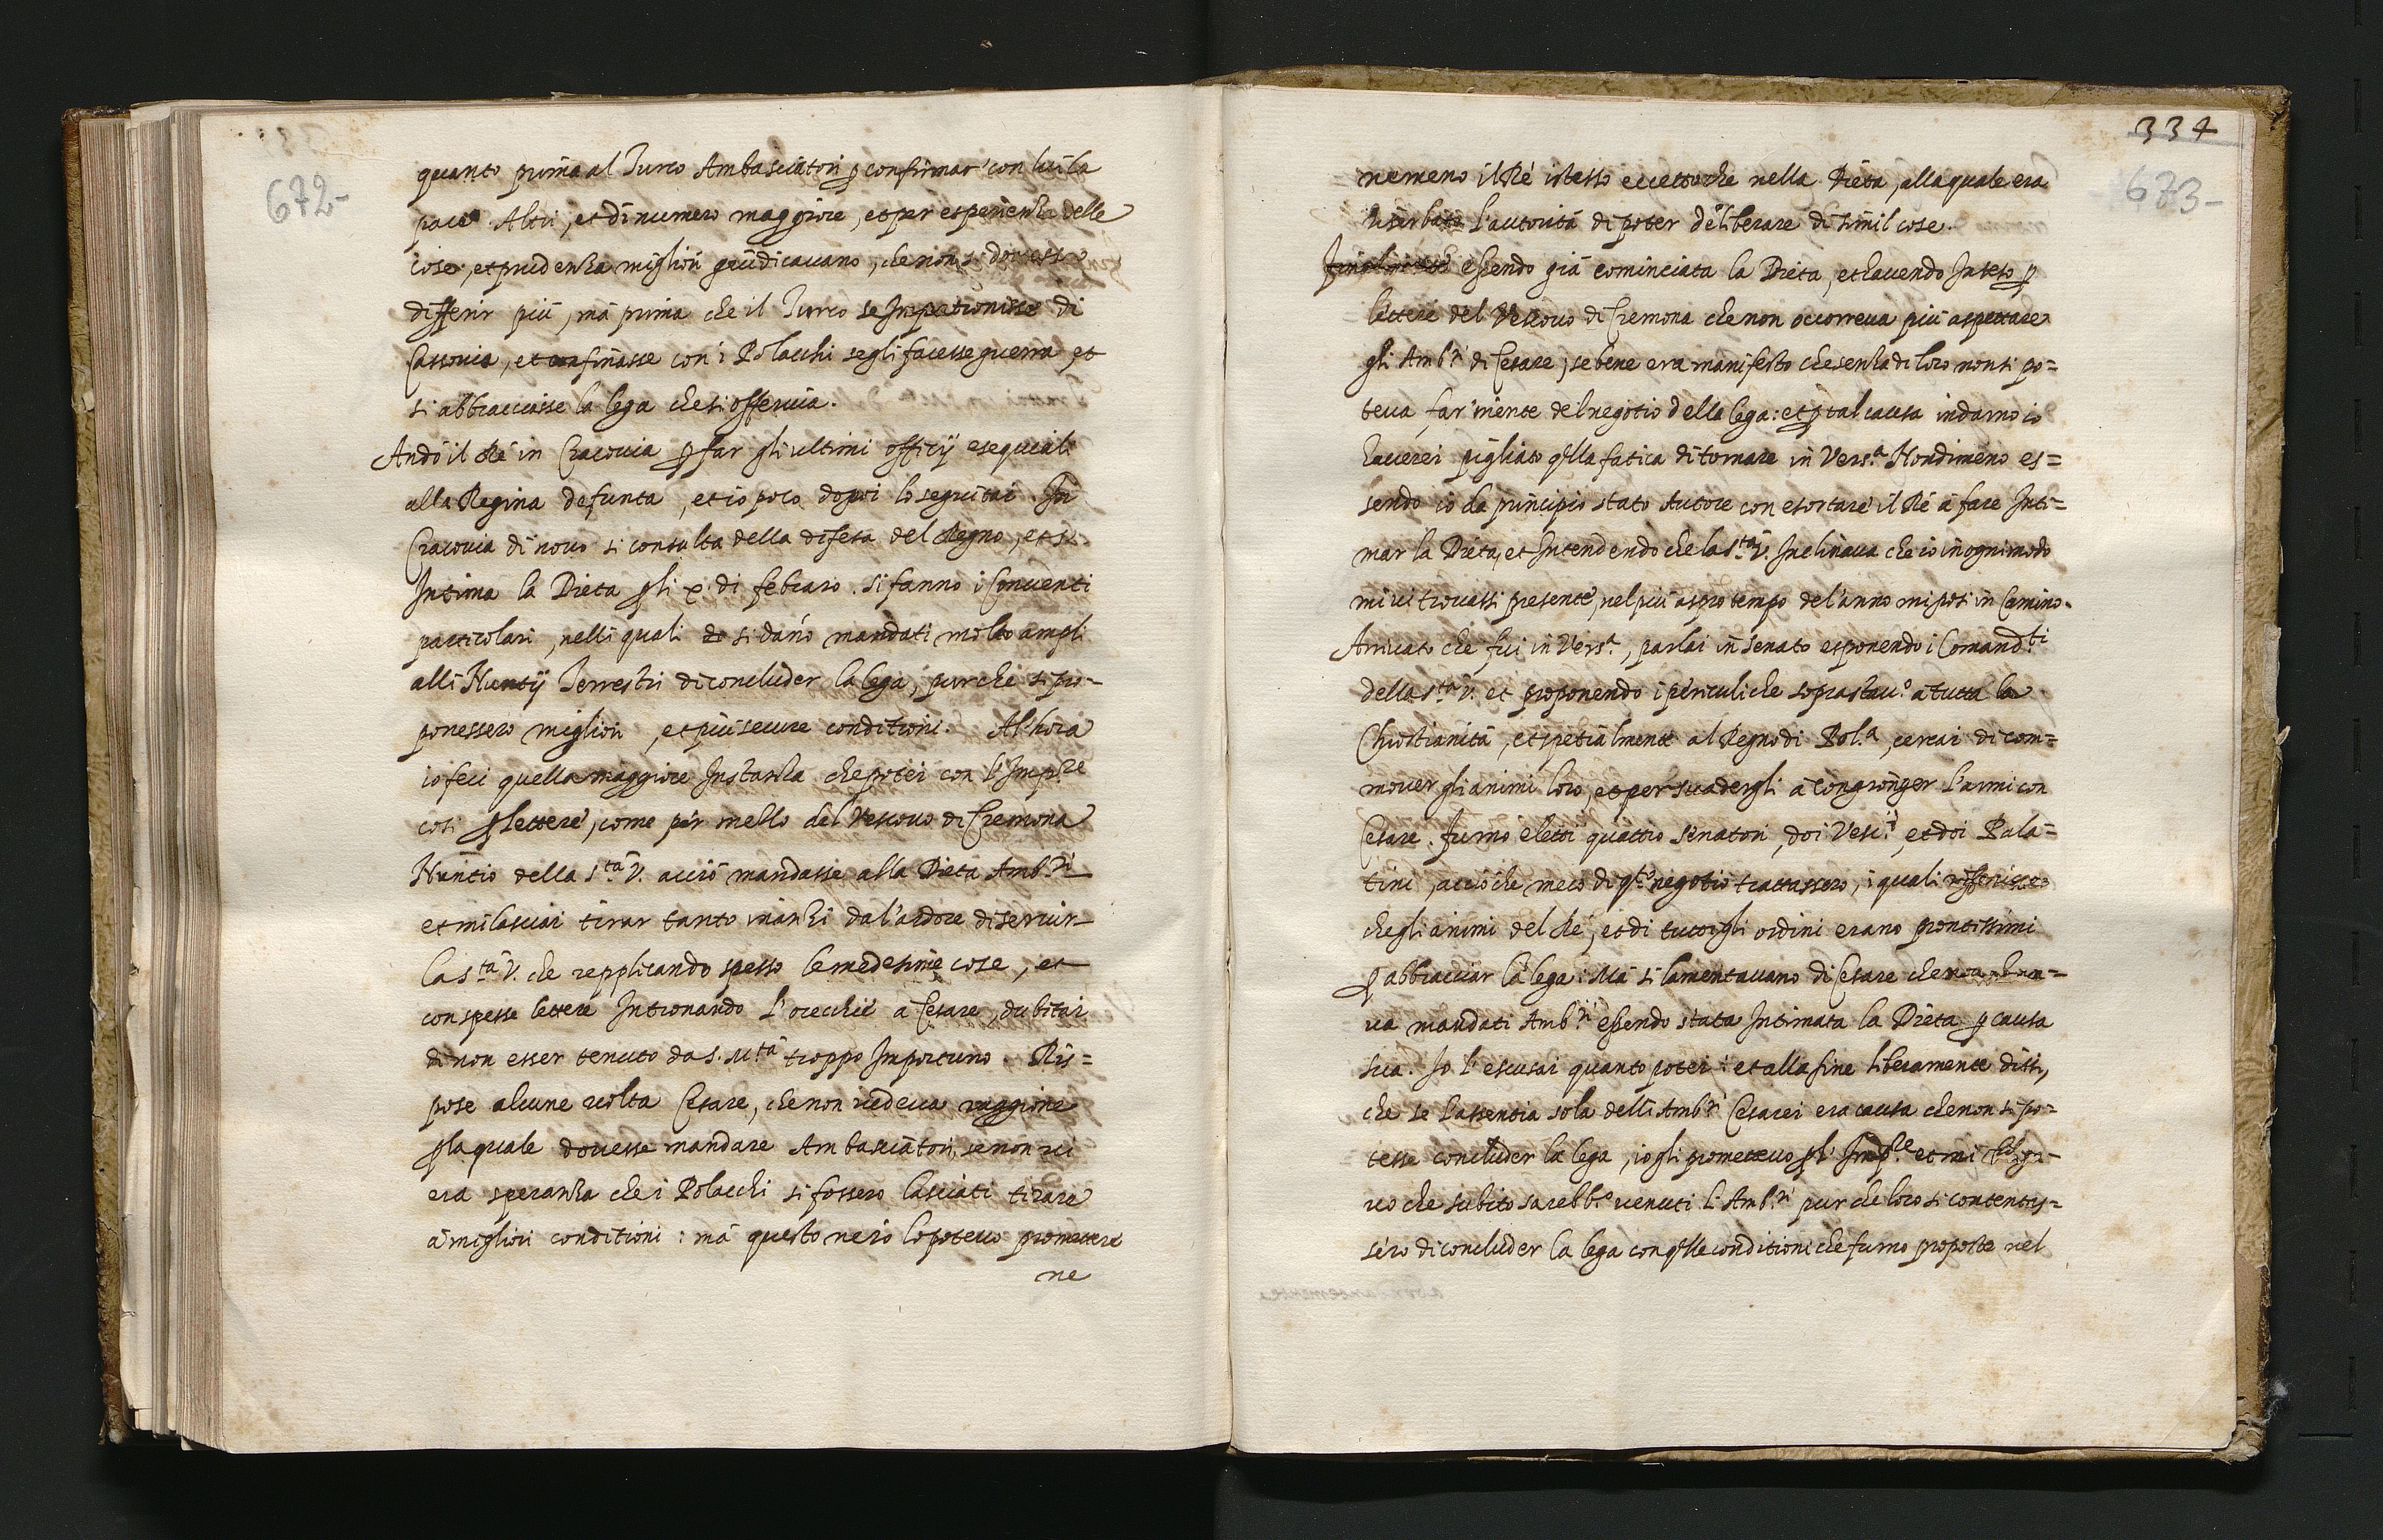 672-
quanto prima al Turco Ambasciatori p confirmar' con lui la
pace. Altri, et di numero maggiore, et per esperienza delle
cose, et prudenza migliori giudicavano, che non si dovesse
differir più, mà prima che il Turco se Impatronisse di
Cassovia, et confinasse con i Polacchi segli facesse guerra, et
si abbracciasse la lega che si offeriva.
Andò il Rè in Cracovia p far gli ultimi officij esequiali
alla Regina defunta, et io poco dopoi lo seguitai. In
Cracovia di novo si consulta della difesa del Regno, et si
Intima la Dieta p li x. di febraro. Si fanno i Conventi
particolari, nelli quali si dano mandati molto ampli
alli Nuntij Terrestri di concluder la lega, purche si pro-
ponessero migliori, et più secure conditioni. Al'hora
io feci quella maggiore Instanza che potei con l'Imp.re
cosi p lettere, come per mezzo del Vescovo di Cremona
Nuntio della S.tà V. acciò mandasse alla Dieta Amb.ri
et mi lasciai tirar tanto inanzi dal'ardore di servir
la S.tà V. che repplicando spesso le medesime cose, et
con spesse lettere Intronando l'orecchie a Cesare, dubitai
di non esser tenuto da S. M.tà troppo Importuno. Ris=
pose alcune volta Cesare, che non vedeva raggione
p la quale dovesse mandare Ambasciatori, se non vi
era speranza che i Polacchi si fossero lasciati tirare
à migliori conditioni: mà questo nè io lo potevo promettere
ne
334
673-
nemeno il Rè istesso eccetto che nella Dieta, alla quale era
riserbata l'autorità di poter deliberare di simil cose.
essendo già cominciata la Dieta, et havendo Inteso p
lettere del Vescovo di Cremona che non occorreva più aspettare
gli Amb.ri di Cesare, se bene era manifesto che senza di loro non si po=
teva far' niente del negotio della lega: et p tal causa indarno io
haverei pigliato qlla fatica di tornare in Vers.a Nondimeno es=
sendo io da principio stato Autore con esortare il Rè à fare Inti=
mar la Dieta, et Intendendo che la S.tà V. Inclinava che io in ogni modo
mi vi trovassi presente, nel più aspro tempo del'anno mi posi in Camino.
Arrivato che fui in Vers.a, parlai in Senato esponendo i Comand.ti
della S.tà V. et proponendo i periculi che soprastav.o à tutta la
Christianità, et spetialmente al Regno di Pol.a, cercai di com=
mover gli animi loro, et persuadergli à congionger l'armi con
Cesare. Furno eletti quattro Senatori, doi Vesc.i, et doi Pala=
tini, acciò che meco di qsto negotio trattassero, i quali
che gli animi del Rè, et di tutti gli ordini erano prontissimi
p abbracciar la lega: Mà si lamentavano di Cesare che non have=
va mandati Amb.ri essendo stata Intimata la Dieta p causa
sua. Io l'escusai quanto potei: et alla fine liberamente dissi,
che se l'assentia sola delli Amb.ri Cesarei era causa che non si po=
tesse concluder la lega, io gli promettevo p l'Imp.re et mi obliga=
vo che subito sarebb.o venuti l'Amb.ri pur che loro si contentas=
sero di concluder la lega con qlle conditioni che furno proposte nel